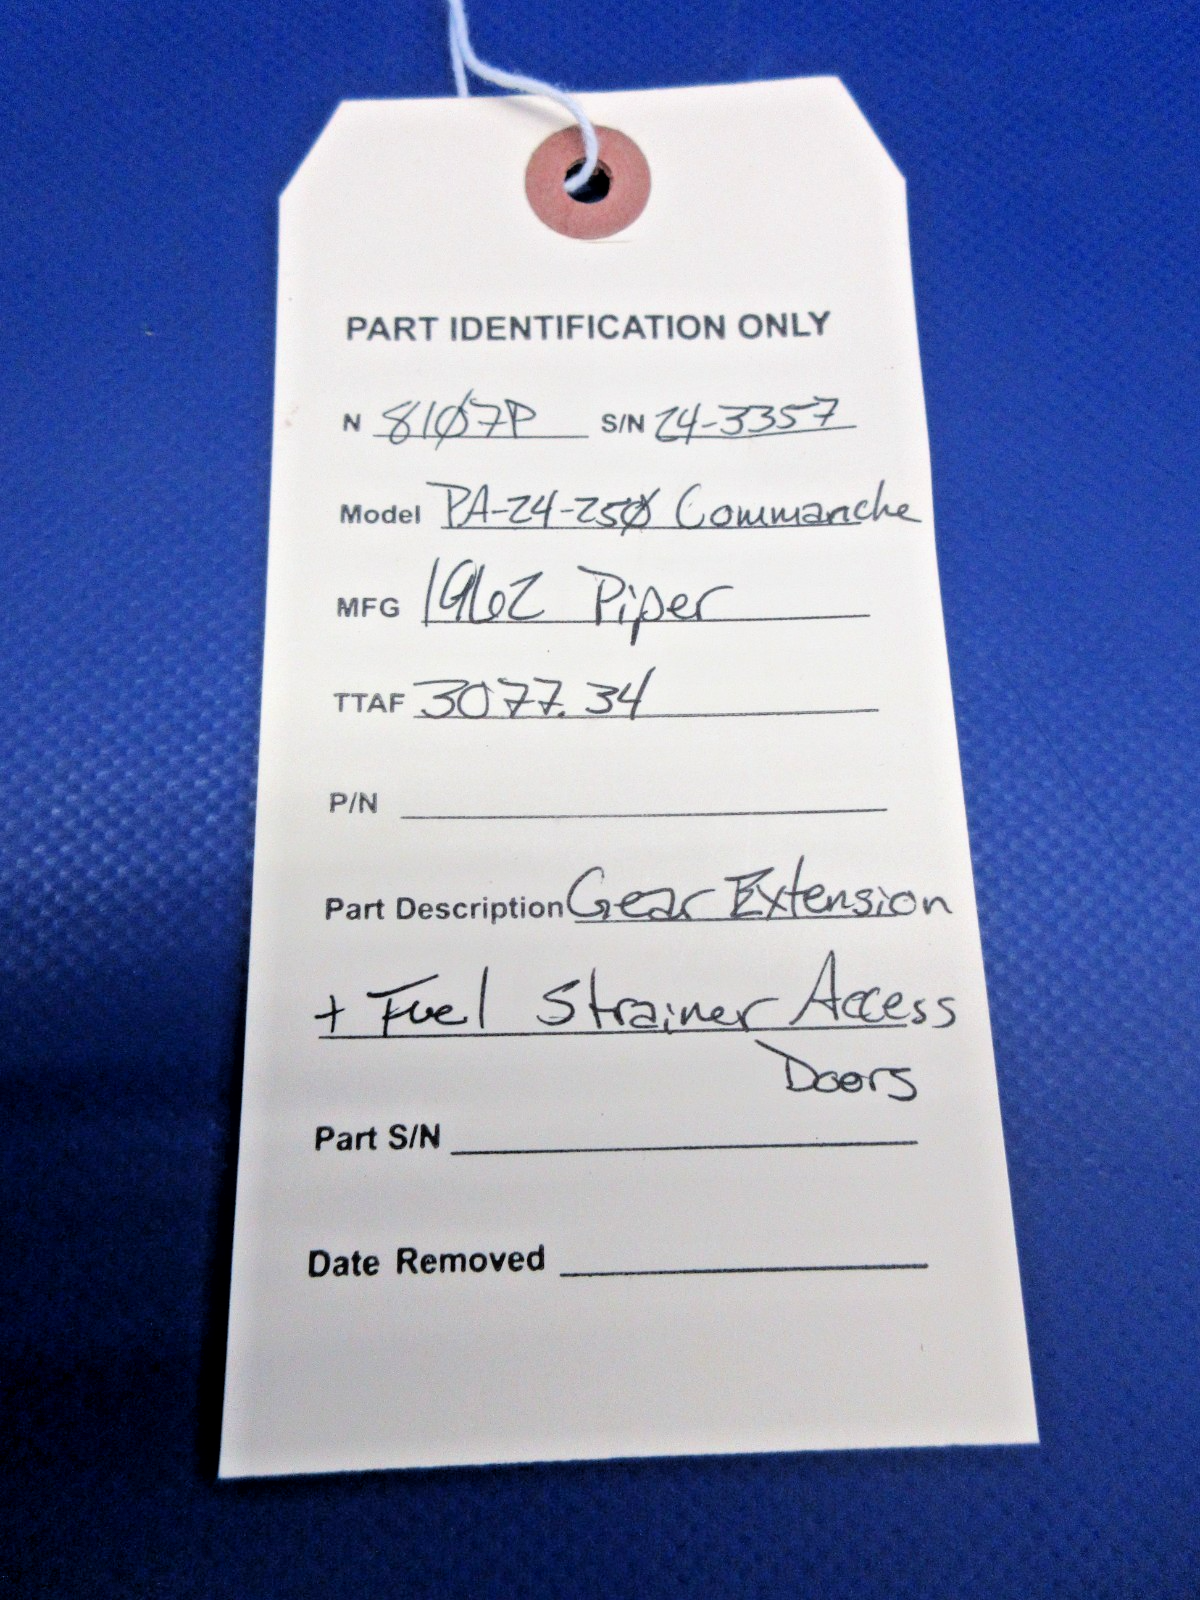 PART IDENTIFICATION ONLY
N 81Ø7P S/N 24-3357
Model PA-24-25Ø Commanche
MFG 1962 Piper
TTAF 3077.34
P/N
Part Description Gear Extension
+ Fuel Strainer Access
Doors
Part S/N
Date Removed